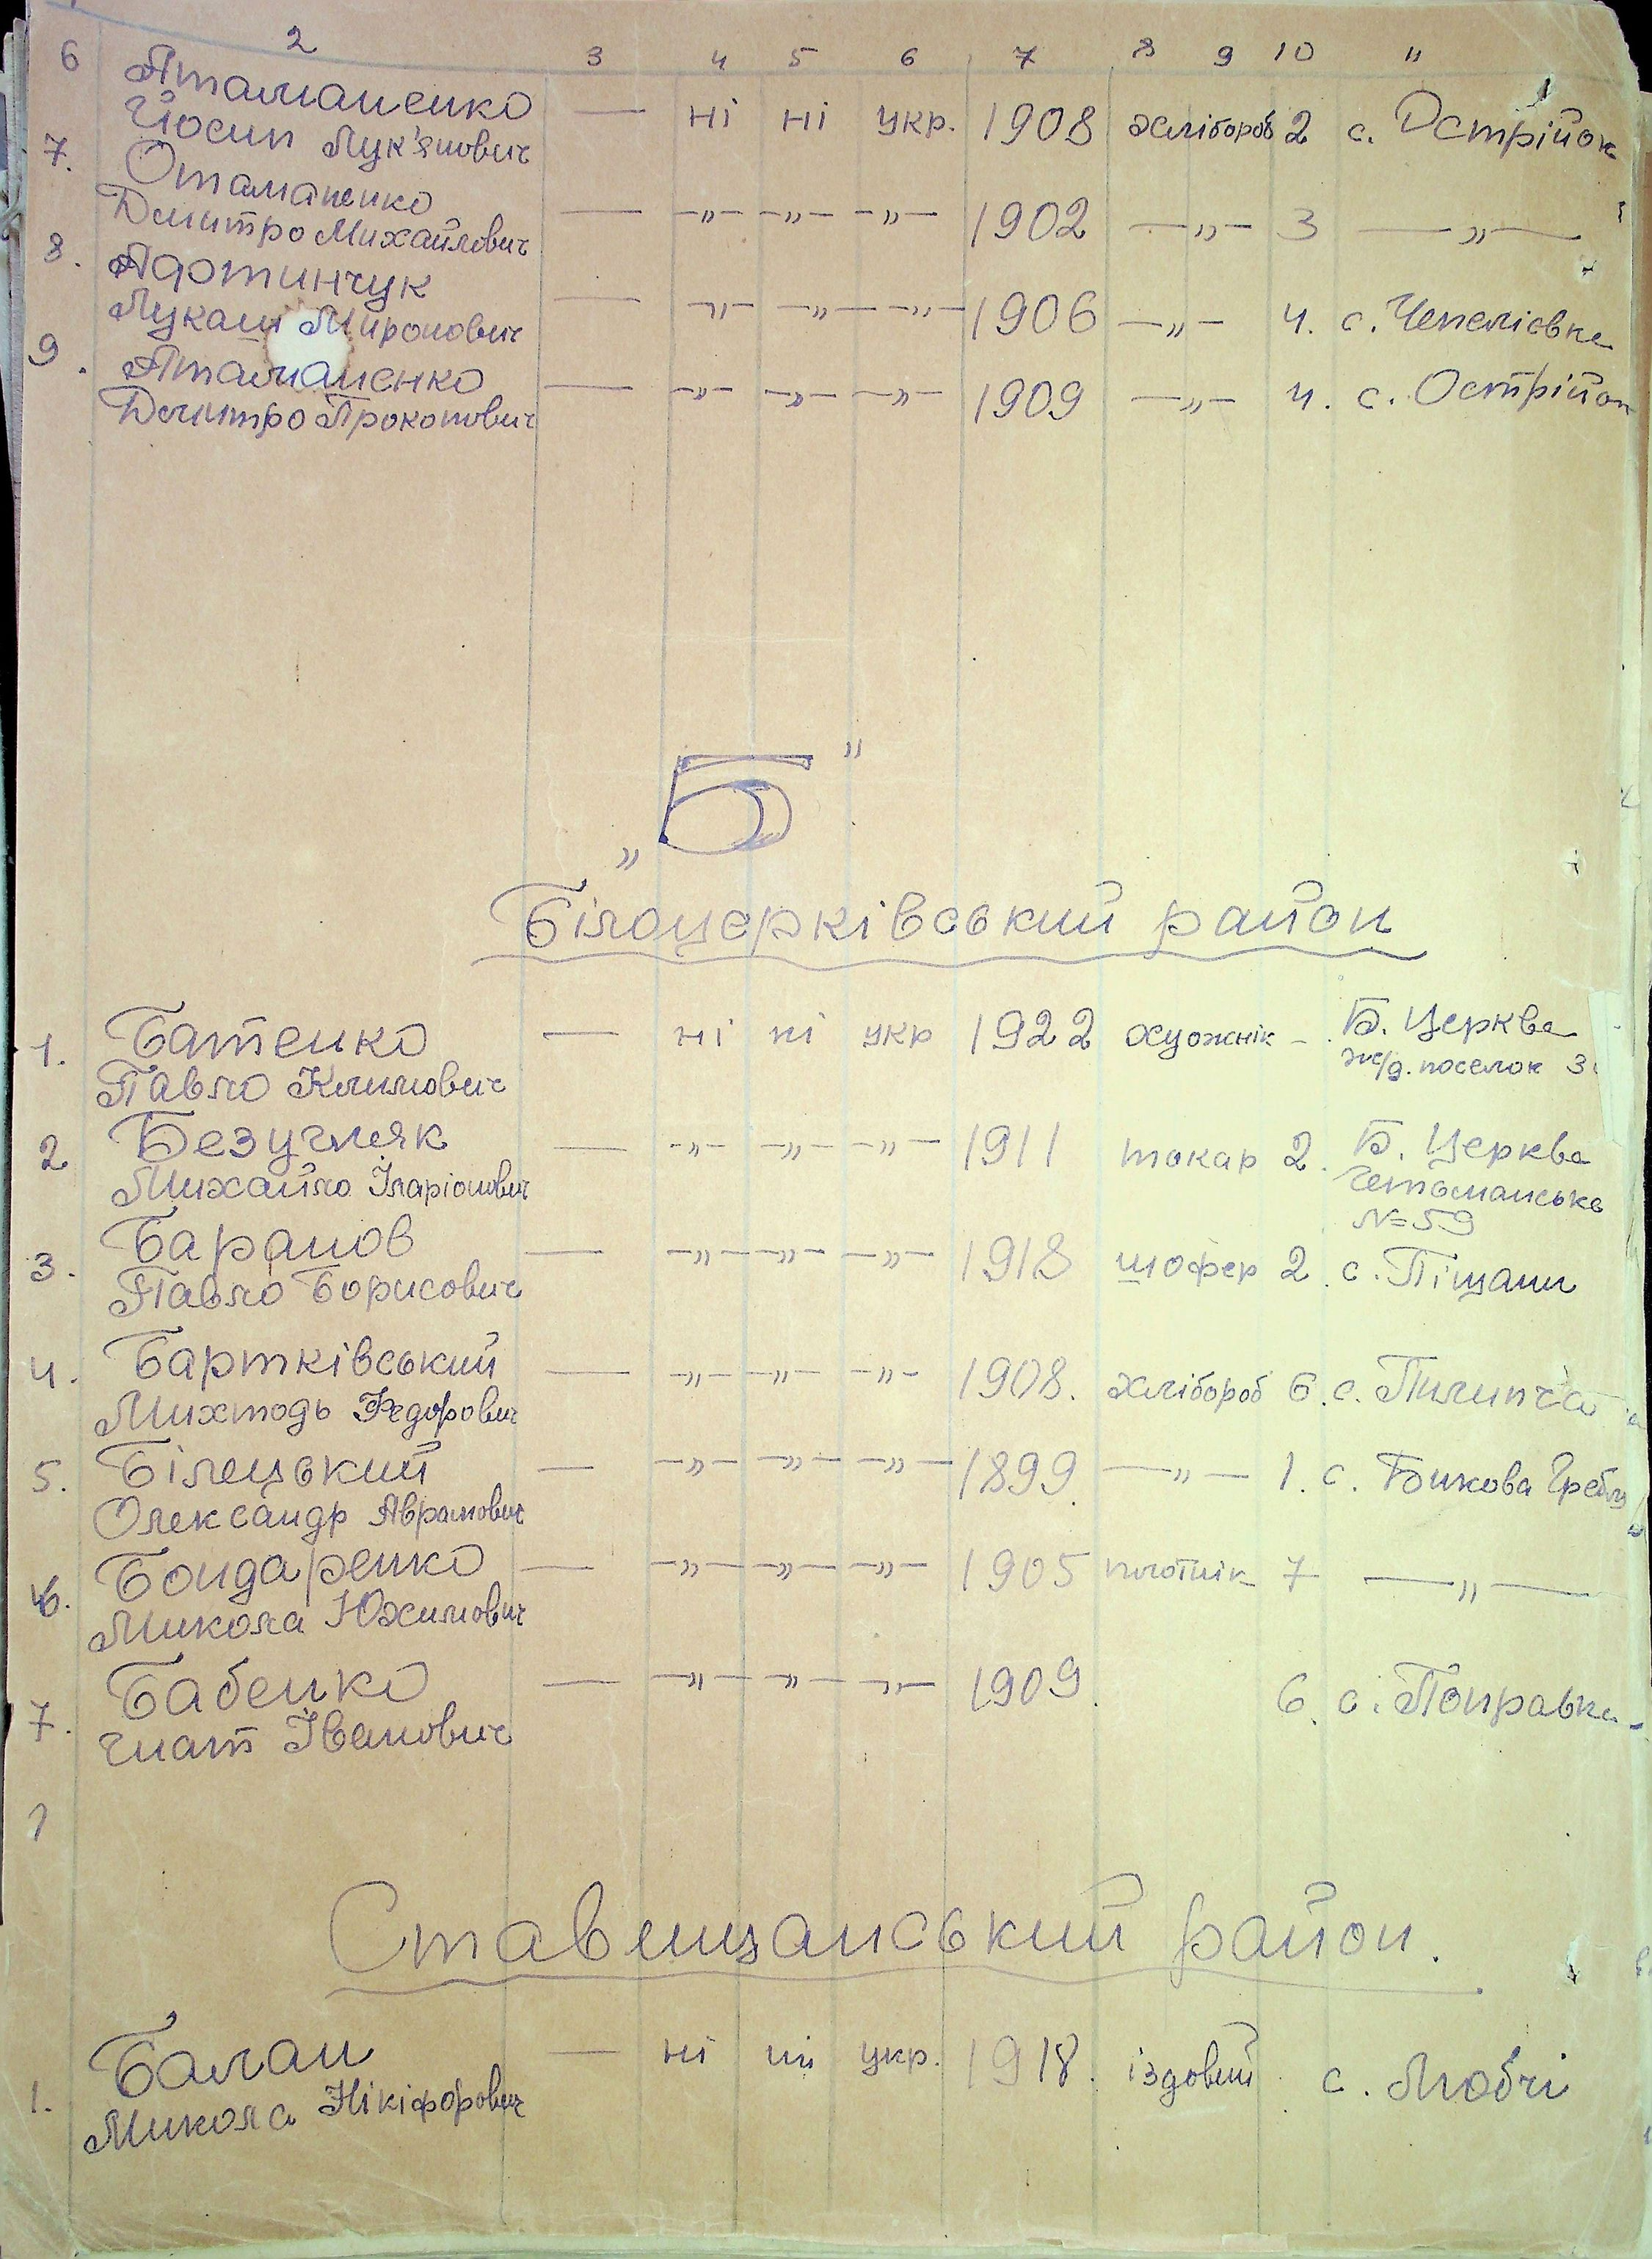 2 3 4 5 6 7 8 9 10 11
6 Атаманенко Йосип Лук'янович — ні ні укр. 1908 хлібороб 2 с. Острійок
7. Отаманенко Дмитро Михайлович — —„— —„— —„— 1902 —„— 3 —„—
8. Мукаш Миронович — —„— —„— —„— 1906 —„— 4. с. Чепеліовка
9. Атаманенко Дмитро Прокопович — —„— —„— —„— 1909 —„— 4. с. Острійок
„Б"
Білоцерківський район
1. Батенко Павло Климович — ні ні укр 1922 художнік – Б. Церква
ж/д. поселок 3
2 Безугляк Михайло Іларіонович — —„— —„— —„— 1911 токар 2. Б. Церква
Гетьманська
№ 59
3. Баранов Павло Борисович — —„— —„— —„— 1918 шофер 2. с. Піщани
4. Бартківський Михтодь Федорович — —„— —„— —„— 1908. хлібороб 6. с. Пилипча
5. Білецький Олександр Аврамович — —„— —„— —„— 1899. —„— 1. с. Бикова Гребля
6. Бондаренко Микола Юхимович — —„— —„— —„— 1905 плотнік 7 —„—
7. Бабенко Гнат Іванович — —„— —„— —„— 1909. 6. с. Поправка
Ставищанський район.
1. Балан Микола Нікіфорович — ні ні укр. 1918. їздовий с. Любчі